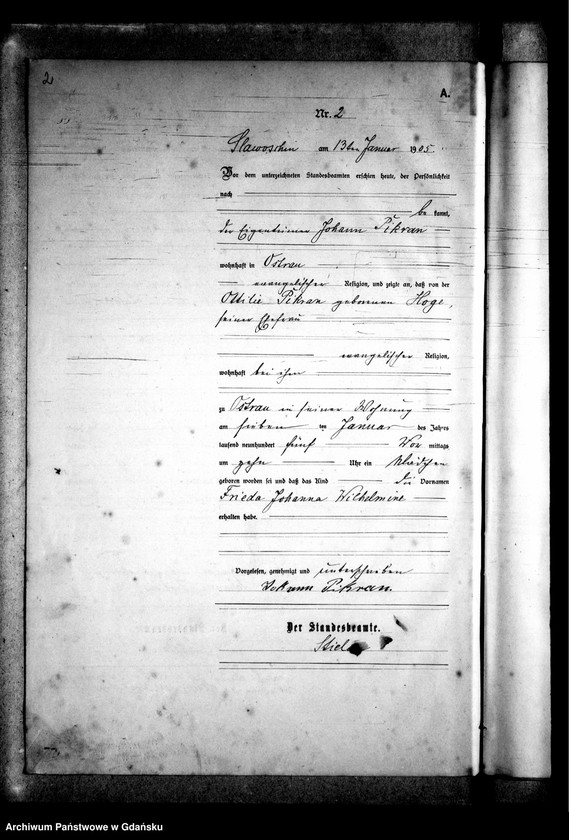 2
A.
Nr. 2
Slawoschin am 13ten Januar 1905
Vor dem unterzeichneten Standesbeamten erschien heute, der Persönlichkeit
nach
be kannt,
der Eigentümer Johann Pikran
wohnhaft in Ostrau
evangelischer Religion, und zeigte an, daß von der
Ottilie Pikran geborenen Hoge,
seiner Ehefrau
evangelischer Religion,
wohnhaft bei ihm
zu Ostrau in seiner Wohnung
am sieben ten Januar des Jahres
tausend neunhundert fünf Vor mittags
um zehn Uhr ein Mädchen
geboren worden sei und daß das Kind die Vornamen
Frieda Johanna Wilhelmine
erhalten habe.
Vorgelesen, genehmigt und unterschrieben
Johann Pikran.
Der Standesbeamte.
Archiwum Państwowe w Gdańsku